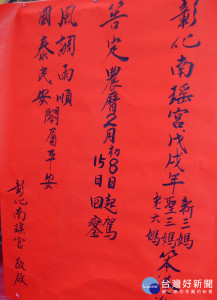 彰化南瑤宮戊戌年新三媽
聖三媽
老大媽
笨
筶定農曆2月初8日起駕
15日回鑾
風調雨順
國泰民安閤眉平安
彰化南瑤宮敬啟